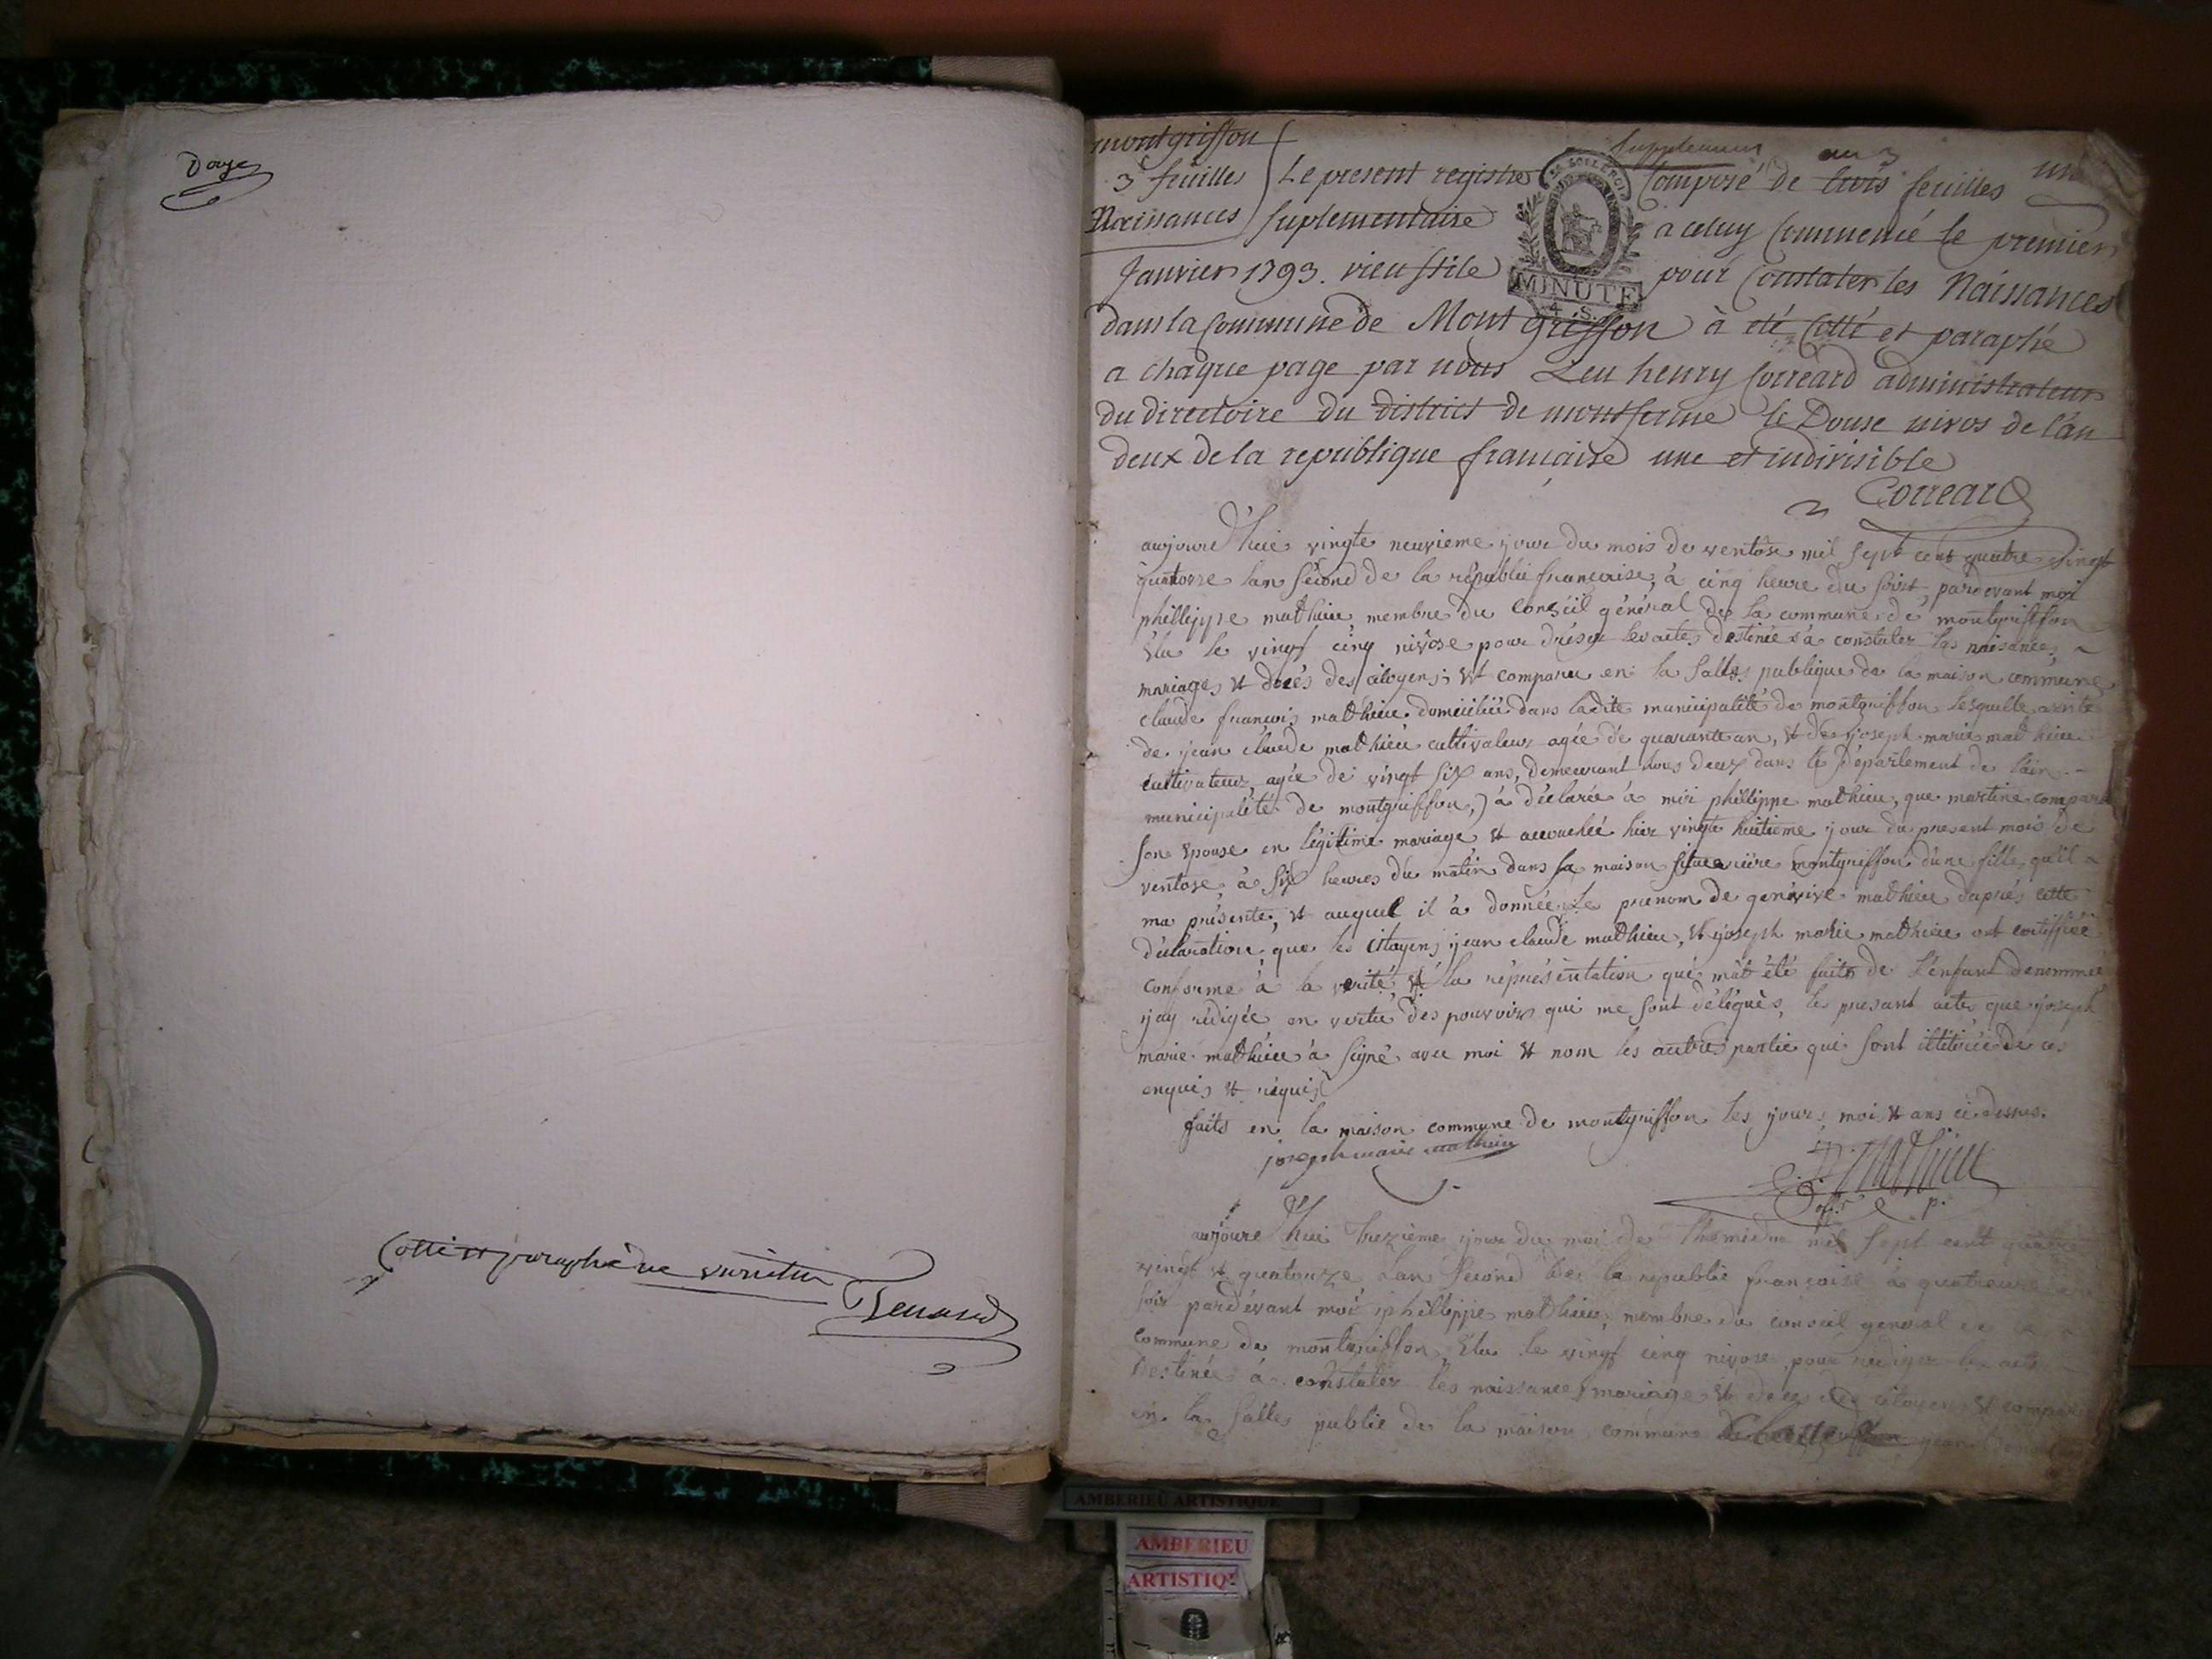 Douze
Cotté et paraphé ne varietur
Renard
montgriffon
3 feuilles
Naissances
supplement
un
Le present registre composé de trois feuilles
suplementaire a celuy Commencé le premier
Janvier 1793. vieu stile pour Constater les Naissances
MINUTE
4. S.
dans la Commune de Mont griffon à eté Cotté et paraphé
a chaque page par nous Leu henry Correard administrateur
du directoire du district de montferme le Douse nivos de l'an
deux de la republique francaise une et indivisible
Correard
aujourd'huie vingte neuvieme jour du mois de ventôse mil sept cent quatre vingt
quatorze lan second de la républie française, à cinq heure du soirt, pardevant moi
phillippe mathieu membre du Conseil général de la commune de montgriffon
élu le vingt cinq nivôse pour dréser les acte destinée à constater las naisances
mariages et décés des citoyens, est comparu en la salles publique de la maison commune
claude françois mathieu domicilié dans ladite municipalité de montgriffon lesquelle
de jean claude mathieu cultivateur agée de quarante an, et de joseph marie mathieu
cultivateur, agée de vingt six ans, demeurant tous deux dans le département de lain
municipalité de montgriffon, à déclarée à moi phillippe mathieu, que martine
son épouse en légitime mariage est accouchée hier vingte huitieme jour du present mois de
ventose, à six heures du matin dans sa maison situe montgriffon d'une fille, qu'il
ma présente, et auquel il à donnée le prenom de genevive mathieu daprès cette
déclaration que les citoyens jean claude mathieu, et joseph marie mathieu ont certiffiée
conforme à la verité, et la réprésentation qui mât été faite de l'enfant denommé
jay rédigée en vertu des pouvoirs qui me sont délégués, le presant acte que joseph
marie mathieu à signé avec moi et nom les autres partie qui sont illitérée de ces
enquis et réquis
faits en la maison commune de montgriffon les jours, moi et ans ci dessus.
joseph marie mathieu
P. Mathieu
off. p.
aujourd'hui trezieme jour du moi de thermidre mil sept cent quatre
vingt et quatouze lan second de la republie françoise à quatreure
soir pardévant moi phillippe mathieu, membre du conseil general de la
commune de montgriffon élu le vingt cinq nivose pour rediger les acte
destinée à constater les naissances mariage et décés des citoyens est comparu
en la salles publie de la maison commune jean
AMBERIEU ARTISTIQUE
AMBERIEU
ARTISTIQ